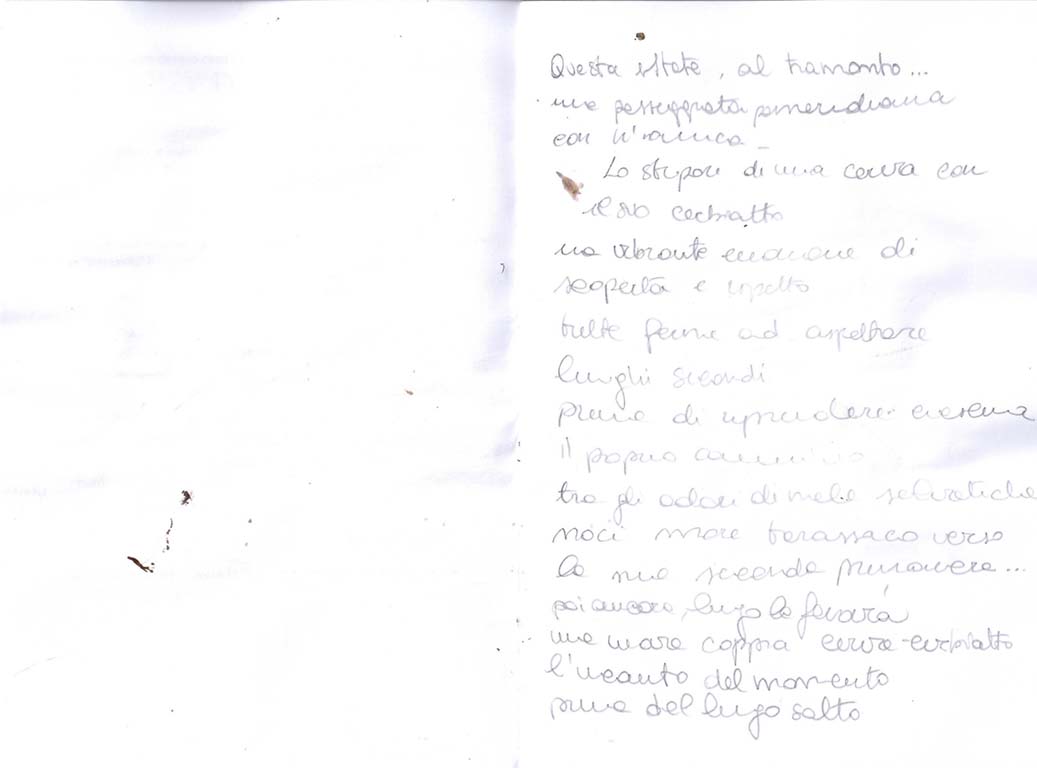 Questa estate, al tramonto...
una passeggiata pomeridiana
con
Lo stupore di una cerva con
il suo cerbiatto
una vibrante emozione di
scoperta e rispetto
tutte ferme ad aspettare
lunghi secondi
prima di riprendere
il proprio cammino
tra gli odori di mele selvatiche
noci more tarassaco verso
la mia seconda primavera...
poi ancora, lungo la
una coppia cerva-cerbiatto
l'incanto del momento
prima del lungo salto